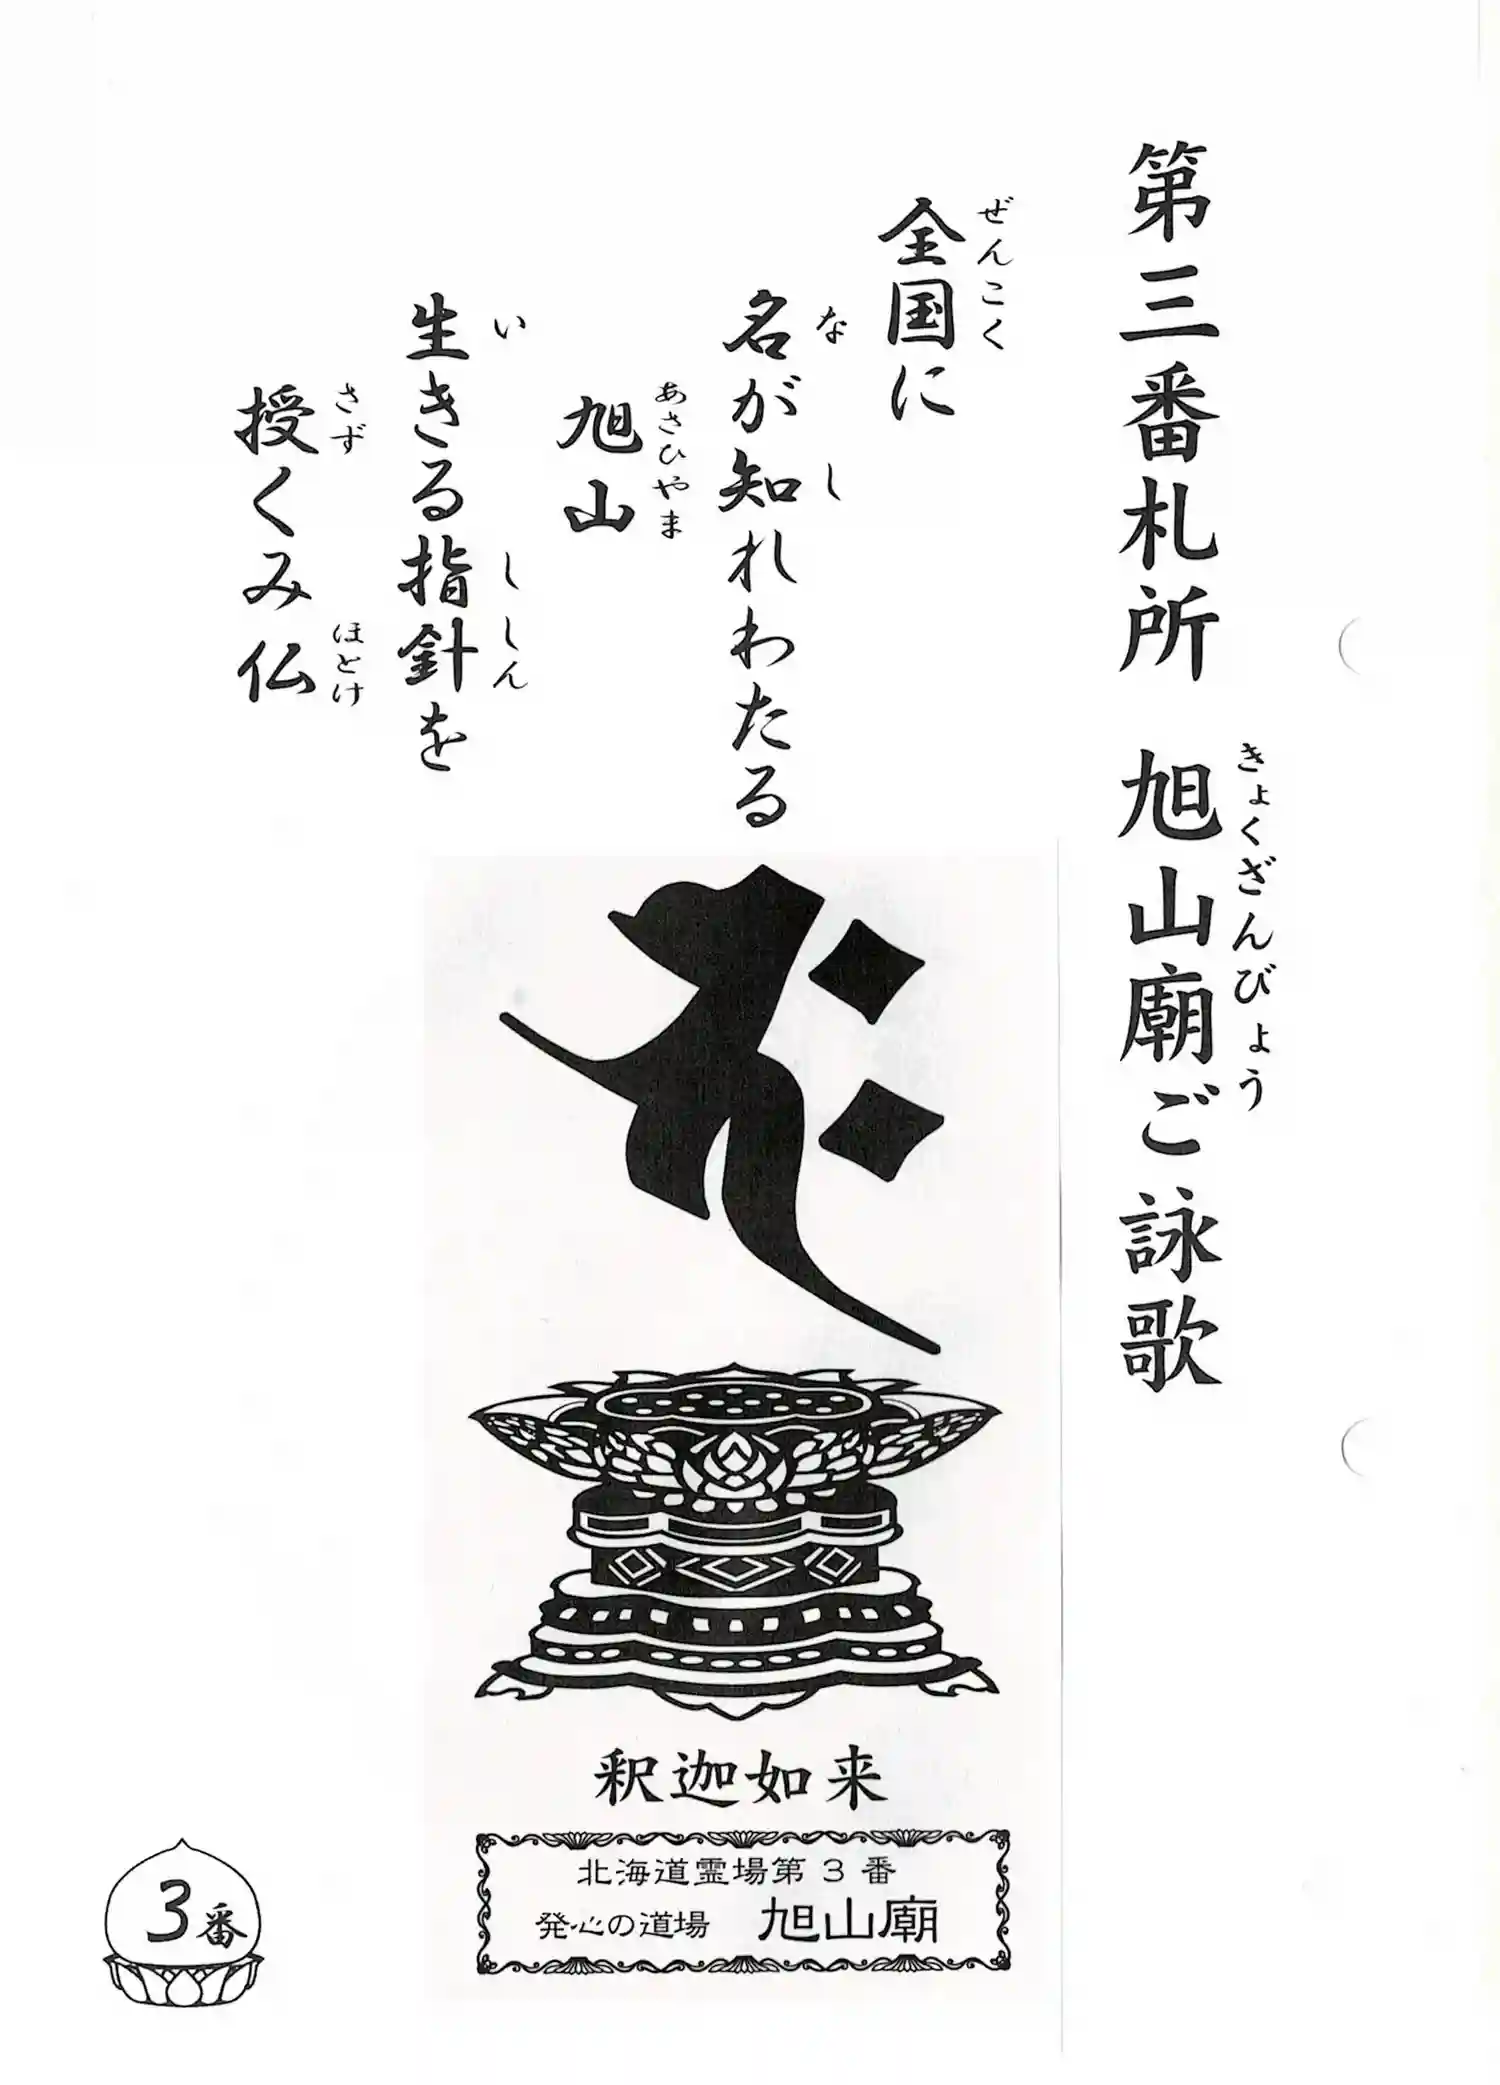 第三番札所　旭山廟ご詠歌
きょくざんびょう
全国に
ぜんこく
名が知れわたる
な　し
旭山
あさひやま
生きる指針を
い　ししん
授くみ仏
さず　ほとけ
釈迦如来
北海道霊場第3番
発心の道場　旭山廟
3番